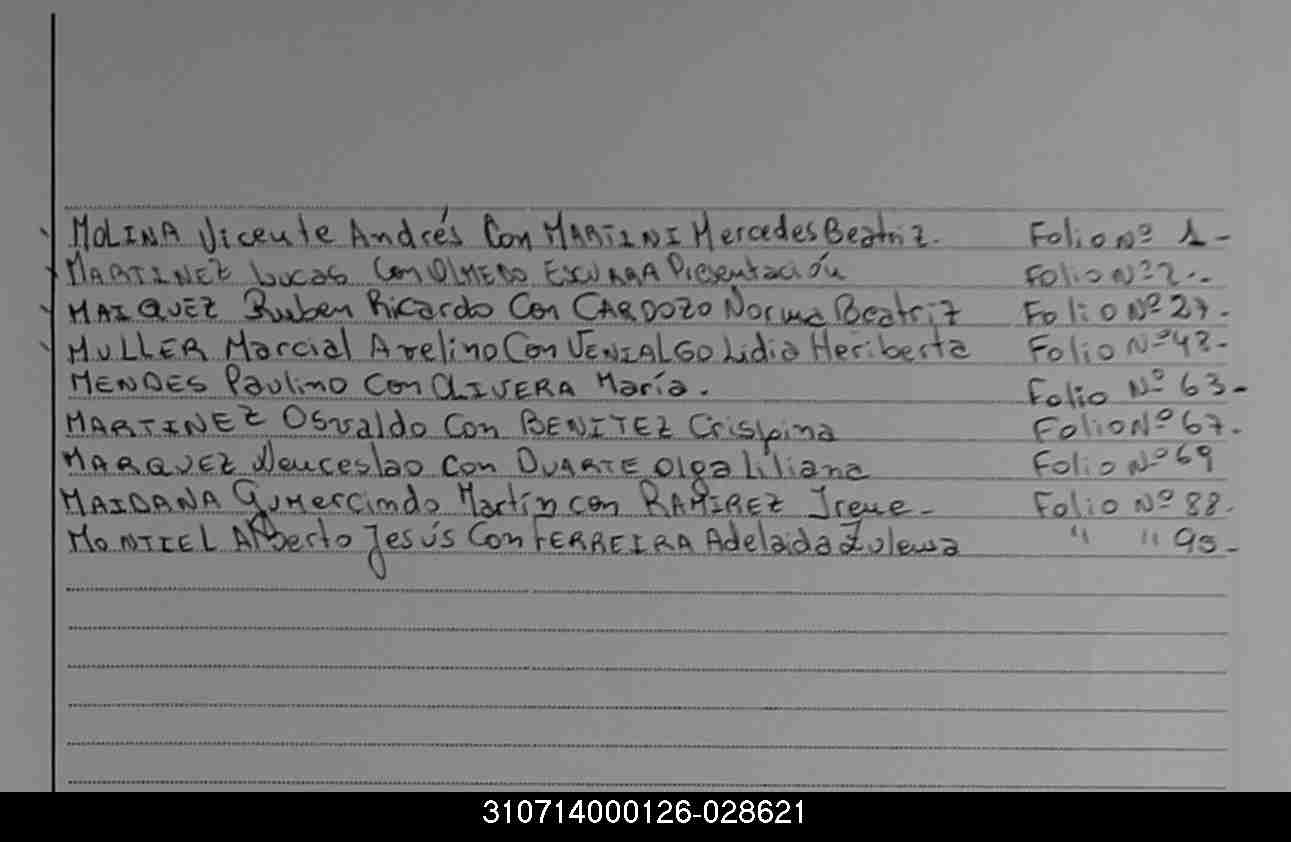 MOLINA Vicente Andrés Con MARTINI Mercedes Beatriz. Folio Nº 1-
MARTINEZ Lucas Con OLMEDO ESCURRA Presentación Folio Nº 2-.
MAIQUEZ Ruben Ricardo Con CARDOZO Norma Beatriz Folio Nº 27.
MULLER Marcial Avelino Con VENIALGO Lidia Heriberta Folio Nº 42-
MENDES Paulino Con OLIVERA María. Folio Nº 63-
MARTINEZ Osvaldo Con BENITEZ Crispina Folio Nº 67.
MARQUEZ Wenceslao con DUARTE Olga Liliana Folio Nº 69
MAIDANA Gumercindo Martín con RAMIREZ Irene- Folio Nº 88.
MONTIEL Alberto Jesús Con FERREIRA Adelaida Zulema " " 95-
310714000126-028621